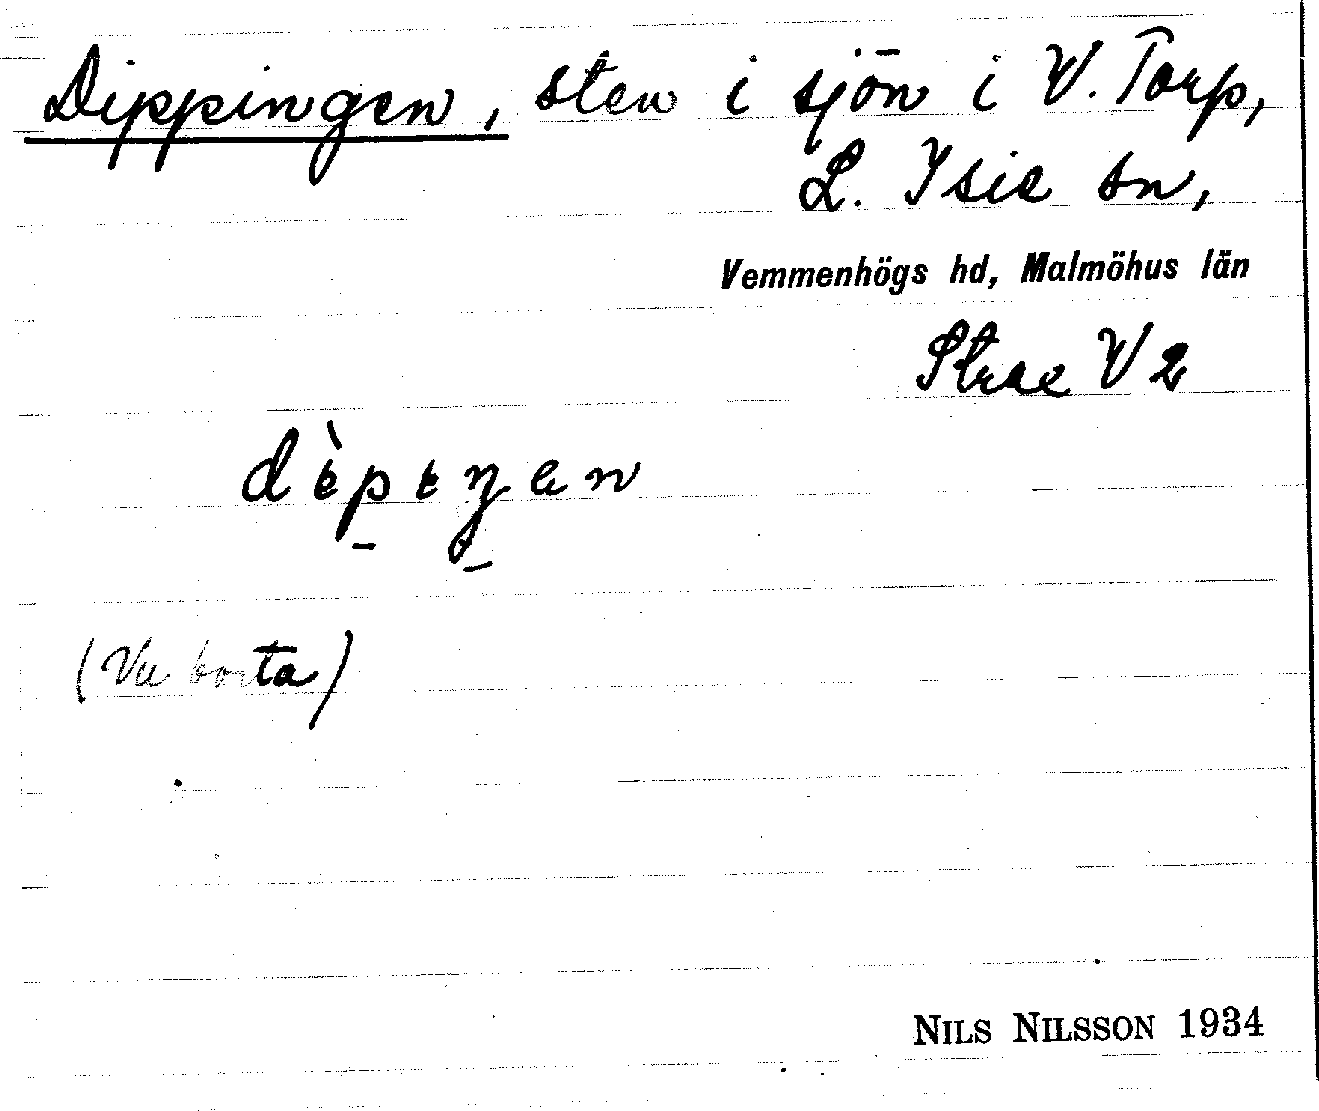 Dippingen, sten i sjön i V. Torp,
L. Isie sn,
Vemmenhögs hd, Malmöhus län
Strae V 2
dèpeŋen
(Nu borta)
NILS NILSSON 1934